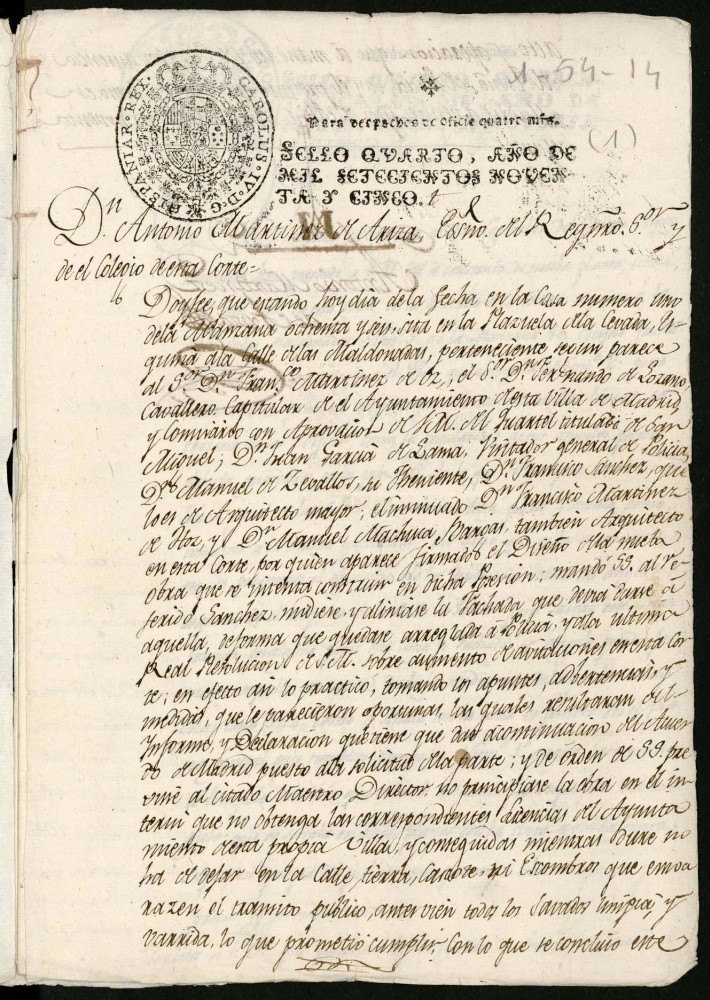 1-54-14
(1)
CAROLUS·IV·D·G·HISPANIAR·REX·
Para despachos de oficio quatro mrs.
SELLO QVARTO, AÑO DE
MIL SETECIENTOS NOVEN-
TA Y CINCO.
Dn. Antonio Martinez de Ariza, Esno. del Reyno. y
de el Colegio de esta Corte=
Doy fee, que estando hoy dia de la fecha en la Casa numero uno
de la Manzana ochenta y seis, sita en la Plazuela de la Cevada, es-
quina a la Calle de las Maldonadas, perteneciente segun parece
al Sor. Dn. Franco. Martinez de Oz; el Sor. Dn. Fernando de Lozano,
Cavallero Capitular de el Ayuntamiento de esta Villa de Madrid,
y Comisario con Aprovacion de S.M. del Quartel titulado de San
Miguel; Dn. Juan Garcia de Lama, Visitador general de Policia,
Dn. Manuel de Zevallos, su Theniente, Dn. Francisco Sanchez, que
lo es de Arquitecto mayor; el insinuado Dn. Francisco Martinez
de Hoz, y Dn. Manuel Machuca Bargas, tambien Arquitecto
en esta Corte, por quien aparece firmado el Diseño de la nueba
obra que se intenta construir en dicha Posesion; mandó SS. al re-
ferido Sanchez, midiese, y alinease la Fachada que devia darse á
aquella, de forma que quedase arreglada á Policia, y a la ultima
Real Resolucion de S.M. sobre aumento de avitaciones en esta Cor-
te; en efecto asi lo practicó, tomando los apuntes, adbertencias, y
medidas, que le parecieron oportunas, las quales resultaran del
Informe, y Declaracion que tiene que dar a continuacion del Acuer-
do de Madrid puesto a la solicitud de la parte; y de orden de SS. pre-
vine al citado Maestro Director no principiase la obra en el in-
terin que no obtenga las correspondientes Licencias del Ayunta-
miento de esta propia Villa, y conseguidas mientras dure no
ha de dejar en la Calle tierra, Cascote, ni Escombros que emba-
razen el transito publico, antes vien todos los Savados limpia, y
varrida, lo que prometió cumplir; Con lo que se concluio este